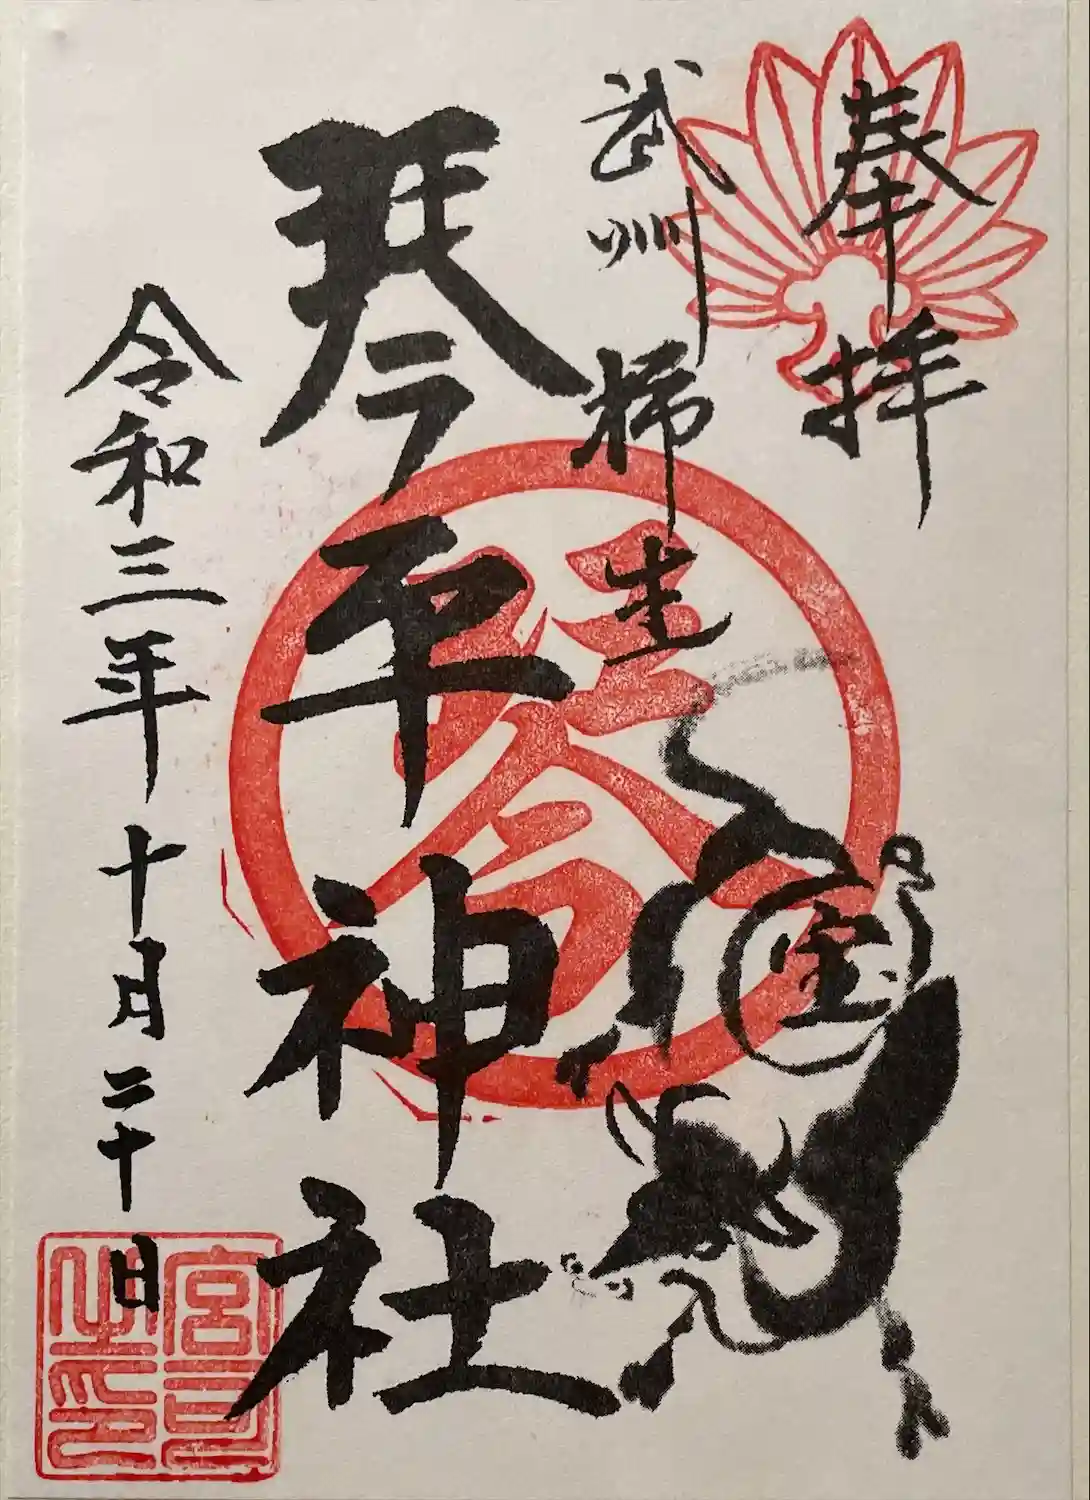 奉拝
武州 柿生
琴平神社
令和三年十月二十日
宝
琴
宮司之印